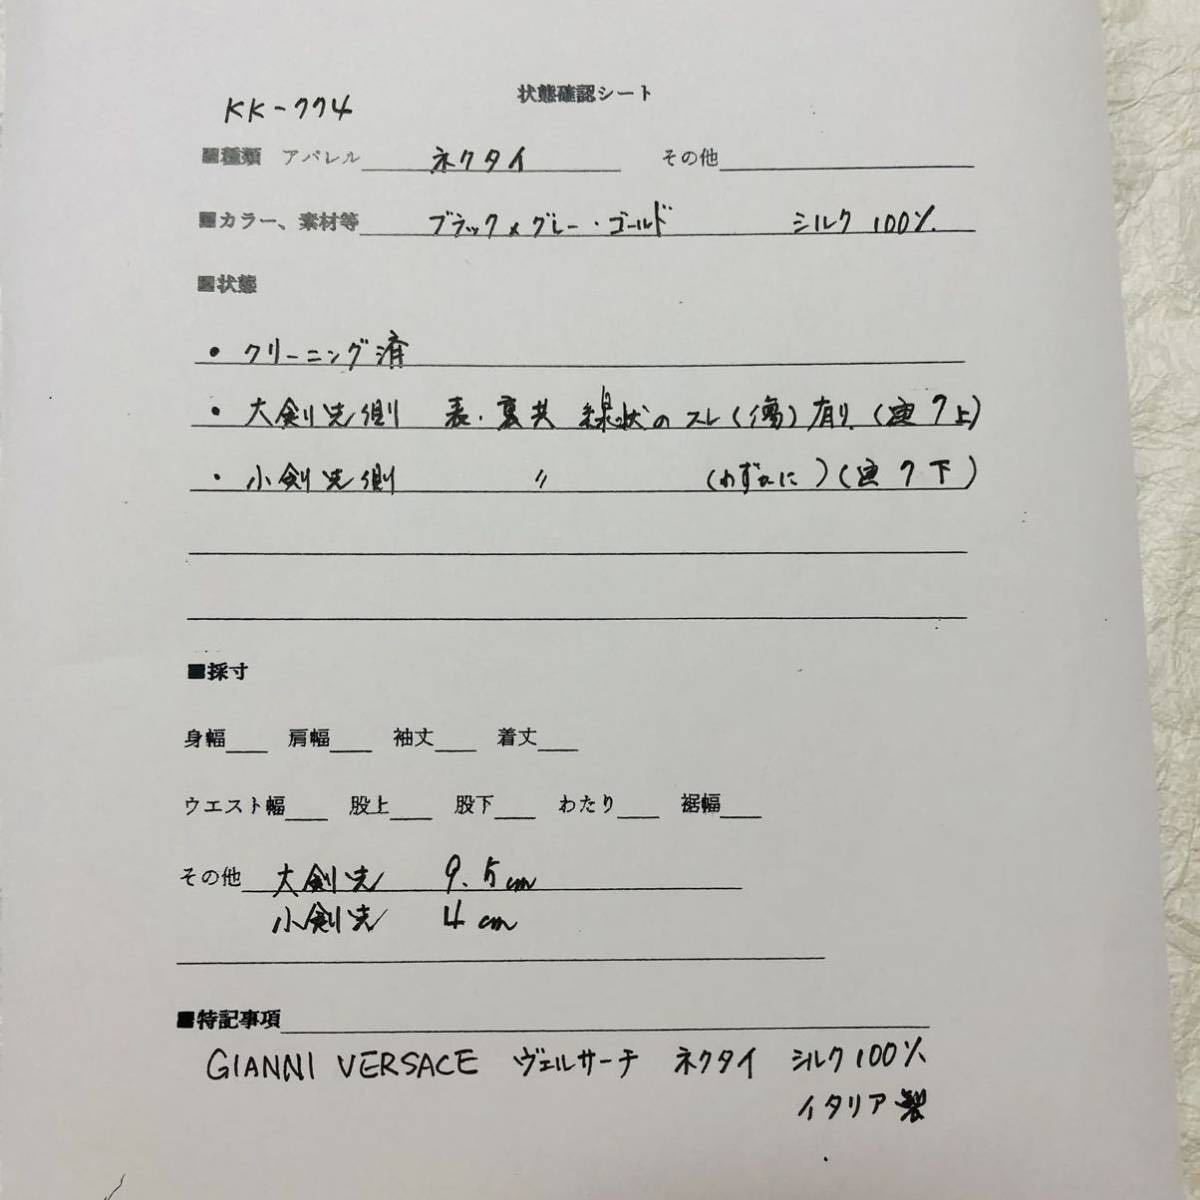 状態確認シート
KK-774
■種類 アパレル ネクタイ その他
■カラー、素材等 ブラック×グレー・ゴールド シルク100%
■状態
・クリーニング済
・大剣先側 表・裏共 線状のスレ(傷)有り(画像上)
・小剣先側 〃 (わずかに)(画像下)
■採寸
身幅 肩幅 袖丈 着丈
ウエスト幅 股上 股下 わたり 裾幅
その他 大剣先 9.5cm
小剣先 4cm
■特記事項
GIANNI VERSACE ヴェルサーチ ネクタイ シルク100%
イタリア製